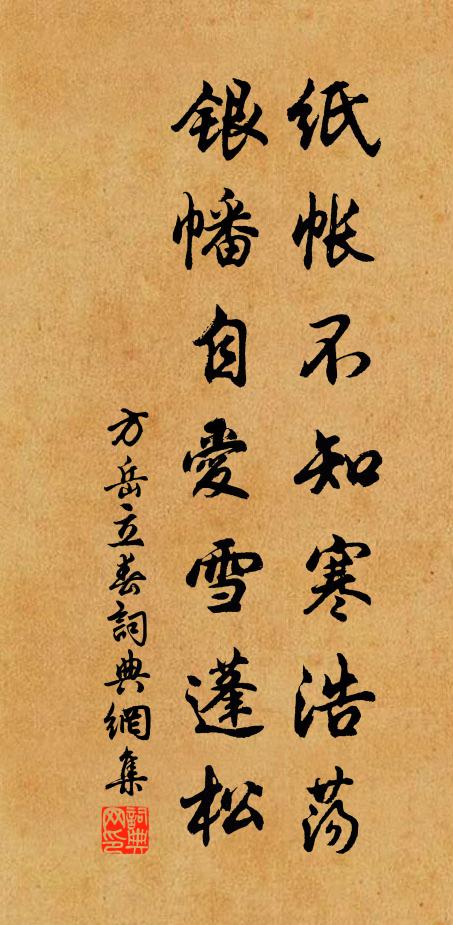 纸帐不知寒浩荡
银幡自爱雪蓬松
方岳立春词典网集
词典网印